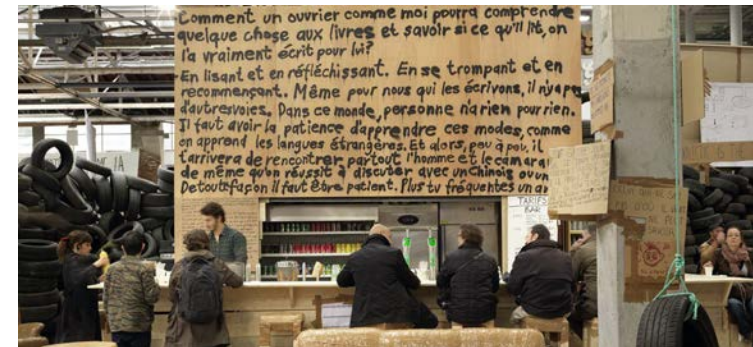 Comment un ouvrier comme moi pourra comprendre
quelque chose aux livres et savoir si ce qu'il lit, on
l'a vraiment écrit pour lui?
En lisant et en réfléchissant. En se trompant et en
recommençant. Même pour nous qui les écrivons, il n'y a pas
d'autres voies. Dans ce monde, personne n'a rien pour rien.
Il faut avoir la patience d'apprendre ces modes, comme
on apprend les langues étrangères. Et alors, peu à peu, il
t'arrivera de rencontrer partout l'homme et le camara
de même qu'on réussit à discuter avec un Chinois ou un
De toute façon il faut être patient. Plus tu fréquentes un
TARIFS
BAR